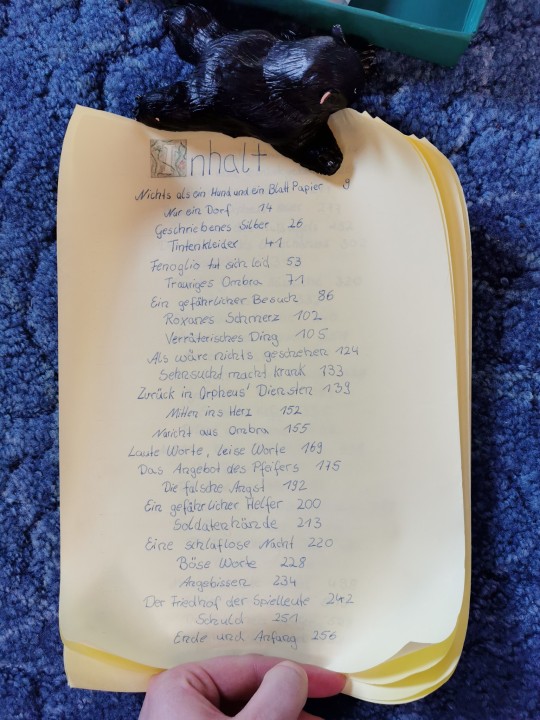 Inhalt
Nichts als ein Hund und ein Blatt Papier 9
Nur ein Dorf 14
Geschriebenes Silber 26
Tintenkleider 41
Fenoglio tut sich leid 53
Trauriges Ombra 71
Ein gefährlicher Besuch 86
Roxanes Schmerz 102
Verräterisches Ding 105
Als wäre nichts geschehen 124
Sehnsucht macht krank 133
Zurück in Orpheus' Diensten 139
Mitten ins Herz 152
Naricht aus Ombra 155
Laute Worte, leise Worte 169
Das Angebot des Pfeifers 175
Die falsche Angst 192
Ein gefährlicher Helfer 200
Soldatenhände 213
Eine schlaflose Nacht 220
Böse Worte 228
Angebissen 234
Der Friedhof der Spielleute 242
Schuld 251
Ende und Anfang 256